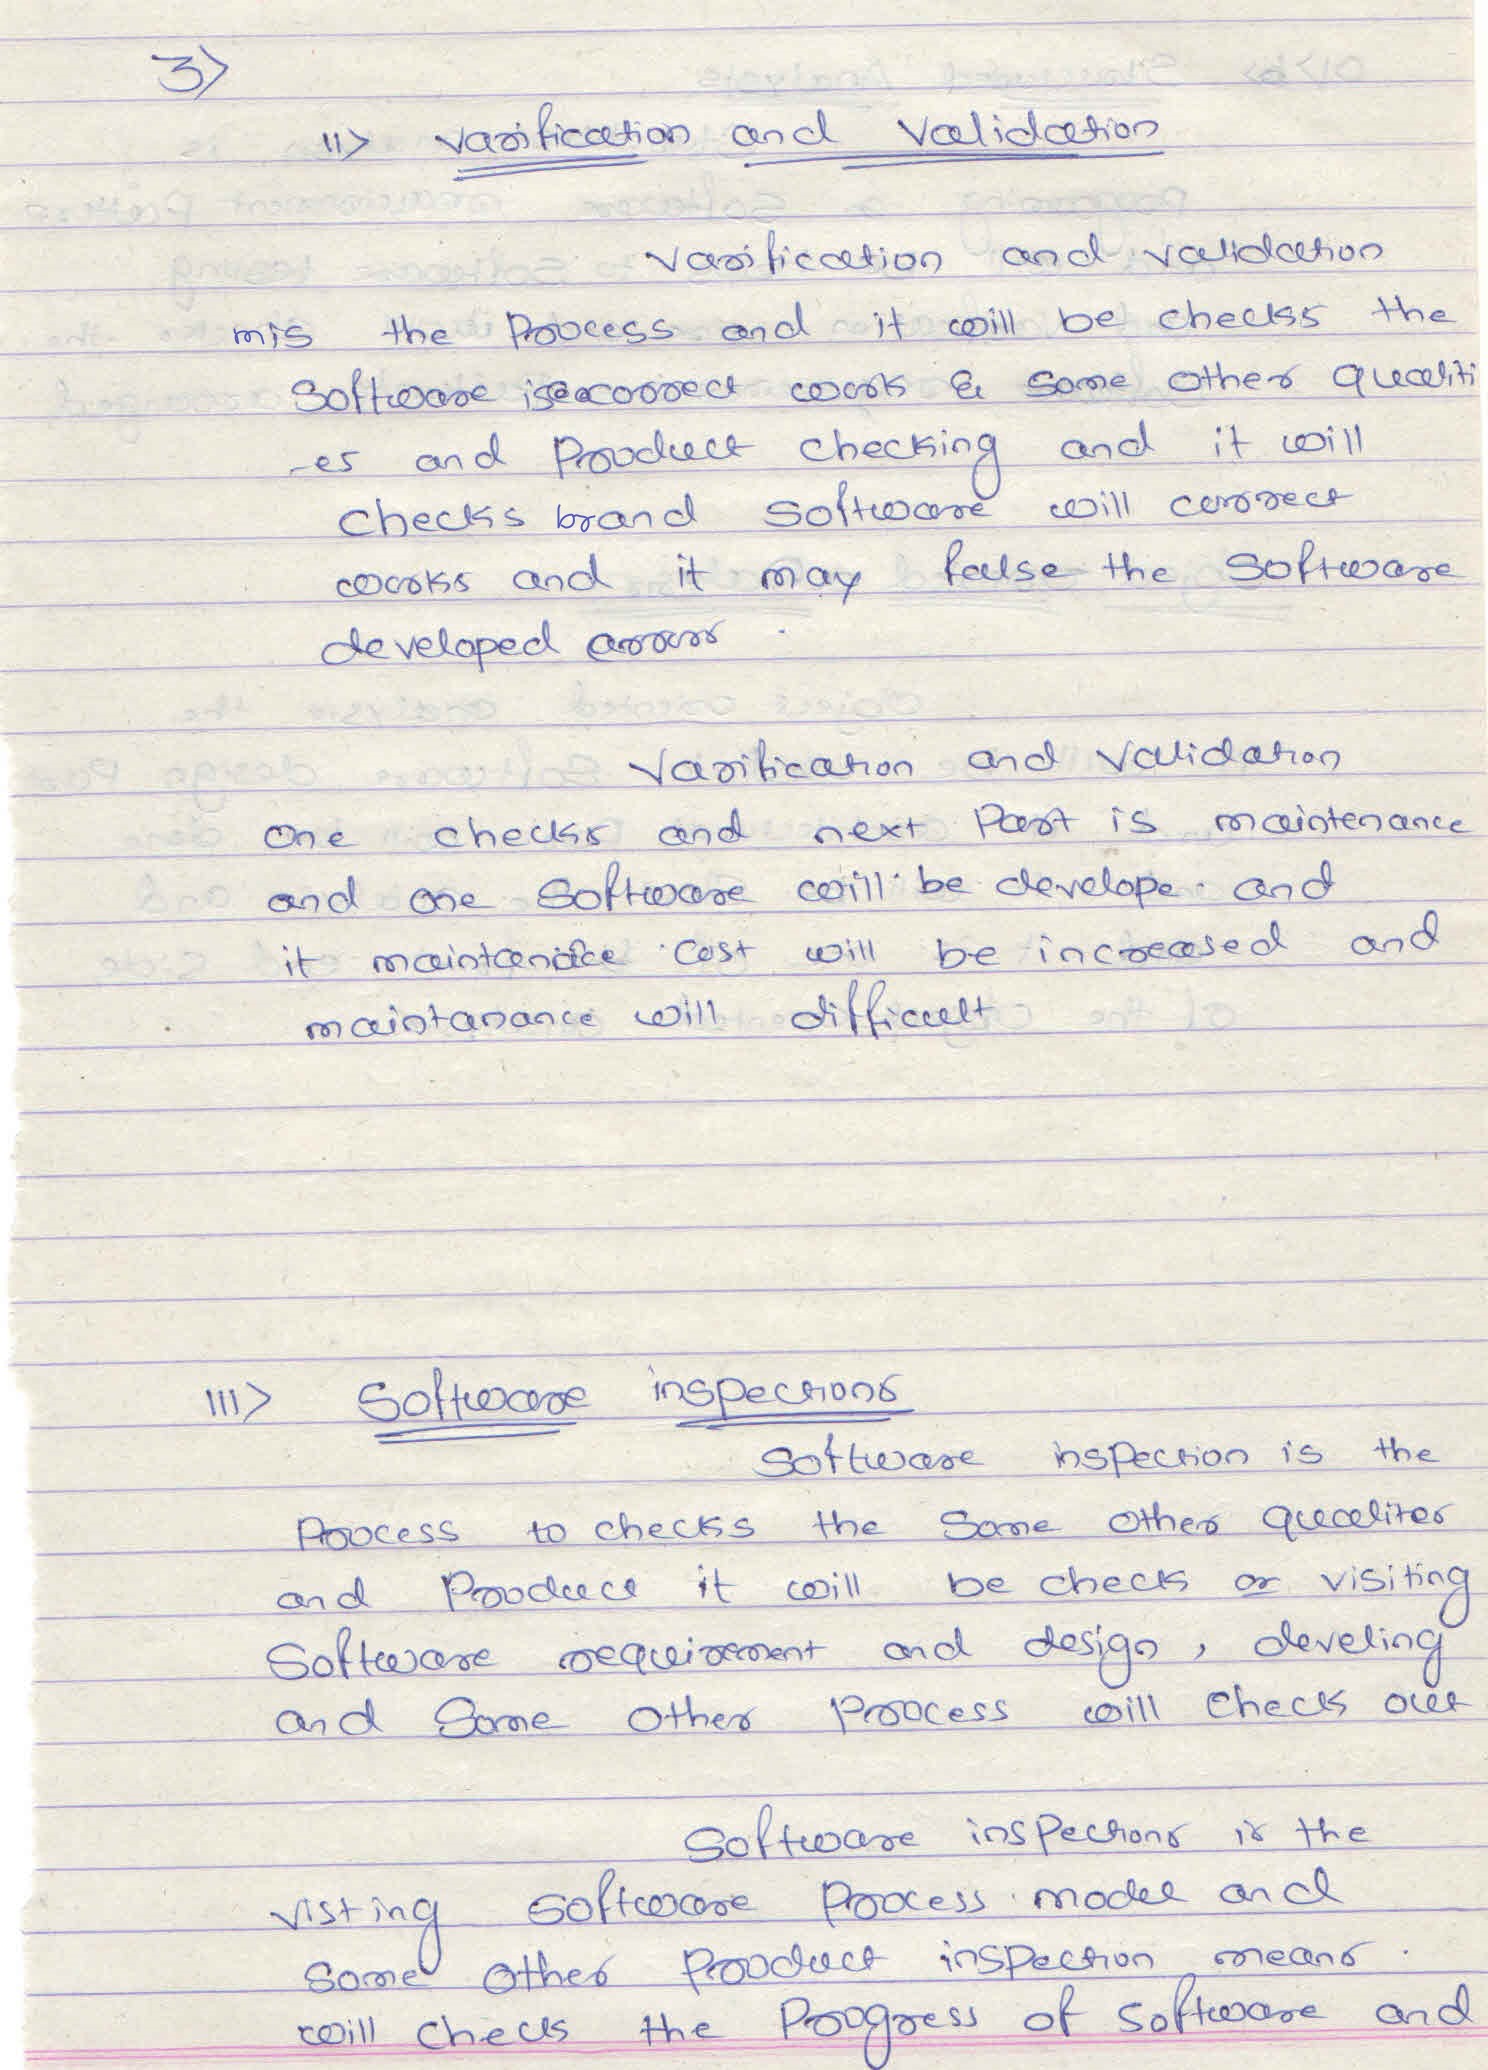 3>
11> varification and validation
varification and validation
mis the Process and it will be checks the
Software is correct work & some other qualiti
-es and Product checking and it will
checks brand software will correct
works and it may false the software
developed arror
varification and validation
one checks and next Part is maintenance
and one software will be develope and
it maintanance cost will be increased and
maintanance will difficult
111> Software inspections
Software inspection is the
Process to checks the some other qualites
and Product it will be check or visiting
Software requirement and design, develing
and some other process will check out
Software inspections is the
visting software Process model and
some other Product inspection means
will check the Progress of software and